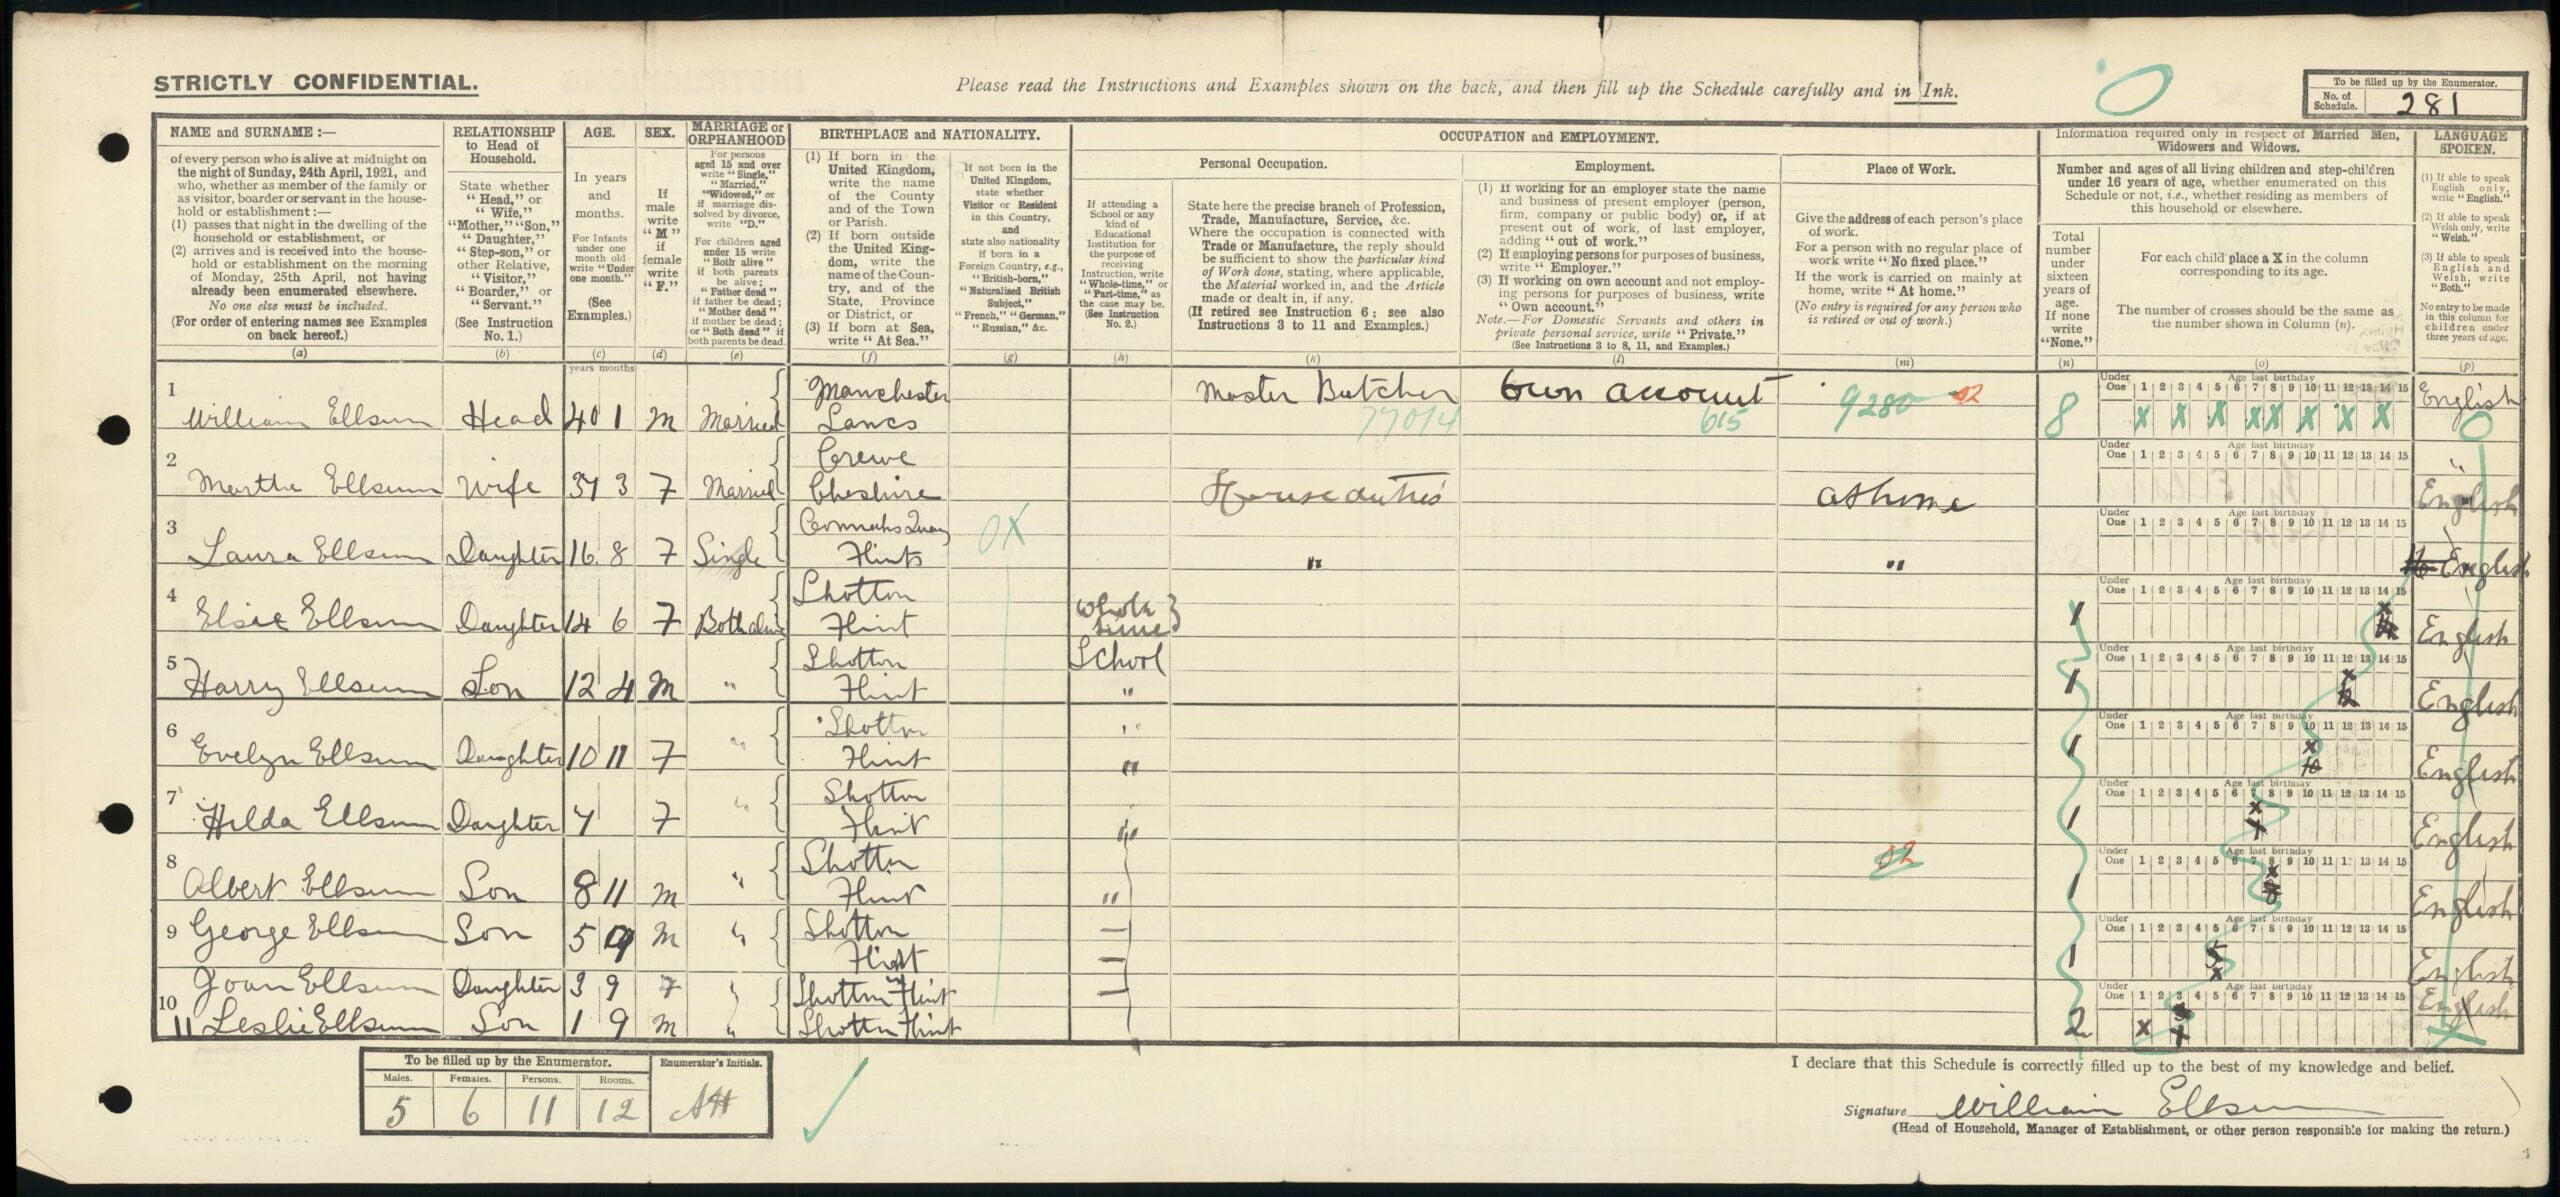 STRICTLY CONFIDENTIAL.
Please read the Instructions and Examples shown on the back, and then fill up the Schedule carefully and in Ink.
To be filled up by the Enumerator.
No. of Schedule. 281
NAME and SURNAME :—
of every person who is alive at midnight on
the night of Sunday, 24th April, 1921, and
who, whether as member of the family or
as visitor, boarder or servant in the house-
hold or establishment :—
(1) passes that night in the dwelling of the
household or establishment, or
(2) arrives and is received into the house-
hold or establishment on the morning
of Monday, 25th April, not having
already been enumerated elsewhere.
No one else must be included.
(For order of entering names see Examples
on back hereof.)
(a)
RELATIONSHIP
to Head of
Household.
State whether
"Head," or
"Wife,"
"Mother," "Son,"
"Daughter,"
"Step-son," or
other Relative,
"Visitor,"
"Boarder," or
"Servant."
(See Instruction
No. 1.)
(b)
AGE.
In years
and
months.
For Infants
under one
month old
write "Under
one month."
(See
Examples.)
(c)
SEX.
If
male
write
"M"
if
female
write
"F."
(d)
MARRIAGE or
ORPHANHOOD
For persons
aged 15 and over
write "Single,"
"Married,"
"Widowed," or
if marriage dis-
solved by divorce,
write "D."
For children aged
under 15 write
"Both alive"
if both parents
be alive;
"Father dead"
if father be dead;
"Mother dead"
if mother be dead;
or "Both dead" if
both parents be dead.
(e)
BIRTHPLACE and NATIONALITY.
(1) If born in the
United Kingdom,
write the name
of the County
and of the Town
or Parish.
(2) If born outside
the United King-
dom, write the
name of the Coun-
try, and of the
State, Province
or District, or
(3) If born at Sea,
write "At Sea."
(f)
If not born in the
United Kingdom,
state whether
Visitor or Resident
in this Country,
and
state also nationality
if born in a
Foreign Country, e.g.,
"British-born,"
"Naturalised British
Subject,"
"French," "German,"
"Russian," &c.
(g)
OCCUPATION and EMPLOYMENT.
If attending a
School or any
kind of
Educational
Institution for
the purpose of
receiving
Instruction, write
"Whole-time," or
"Part-time," as
the case may be.
(See Instruction
No. 2.)
(h)
Personal Occupation.
State here the precise branch of Profession,
Trade, Manufacture, Service, &c.
Where the occupation is connected with
Trade or Manufacture, the reply should
be sufficient to show the particular kind
of Work done, stating, where applicable,
the Material worked in, and the Article
made or dealt in, if any.
(If retired see Instruction 6; see also
Instructions 3 to 11 and Examples.)
(k)
Employment.
(1) If working for an employer state the name
and business of present employer (person,
firm, company or public body) or, if at
present out of work, of last employer,
adding "out of work."
(2) If employing persons for purposes of business,
write "Employer."
(3) If working on own account and not employ-
ing persons for purposes of business, write
"Own account."
Note.—For Domestic Servants and others in
private personal service, write "Private."
(See Instructions 3 to 8, 11, and Examples.)
(l)
Place of Work.
Give the address of each person's place
of work.
For a person with no regular place of
work write "No fixed place."
If the work is carried on mainly at
home, write "At home."
(No entry is required for any person who
is retired or out of work.)
(m)
Information required only in respect of Married Men,
Widowers and Widows.
Number and ages of all living children and step-children
under 16 years of age, whether enumerated on this
Schedule or not, i.e., whether residing as members of
this household or elsewhere.
Total
number
under
sixteen
years of
age.
If none
write
"None."
(n)
For each child place a X in the column
corresponding to its age.
The number of crosses should be the same as
the number shown in Column (n).
(o)
LANGUAGE
SPOKEN.
(1) If able to speak
English only,
write "English."
(2) If able to speak
Welsh only, write
"Welsh."
(3) If able to speak
English and
Welsh, write
"Both."
No entry to be made
in this column for
children under
three years of age.
(p)
years months
Under One Age last birthday 1 2 3 4 5 6 7 8 9 10 11 12 13 14 15
1 William Ellsum Head 40 1 M Married Manchester Lancs Master Butcher 770/4 Own account 615 9280 02 8 X X X X X X X X English
2 Martha Ellsum Wife 37 3 F Married Crewe Cheshire House duties at home English
3 Laura Ellsum Daughter 16 8 F Single Connahs Quay Flints OX " " English
4 Elsie Ellsum Daughter 14 6 F Both alive Shotton Flint Whole time 1 X English
5 Harry Ellsum Son 12 4 M " Shotton Flint School " 1 X 12 English
6 Evelyn Ellsum Daughter 10 11 F " Shotton Flint " " 1 X 10 English
7 Hilda Ellsum Daughter 7 F " Shotton Flint " 1 X 7 English
8 Albert Ellsum Son 8 11 M " Shotton Flint " 02 1 X 8 English
9 George Ellsum Son 5 9 M " Shotton Flint — — 1 5 X English
10 Joan Ellsum Daughter 3 9 F " Shotton Flint — English
11 Leslie Ellsum Son 1 9 M " Shotton Flint 2 X X
To be filled up by the Enumerator.
Males. Females. Persons. Rooms.
5 6 11 12
Enumerator's Initials.
AH
I declare that this Schedule is correctly filled up to the best of my knowledge and belief.
Signature William Ellsum
(Head of Household, Manager of Establishment, or other person responsible for making the return.)